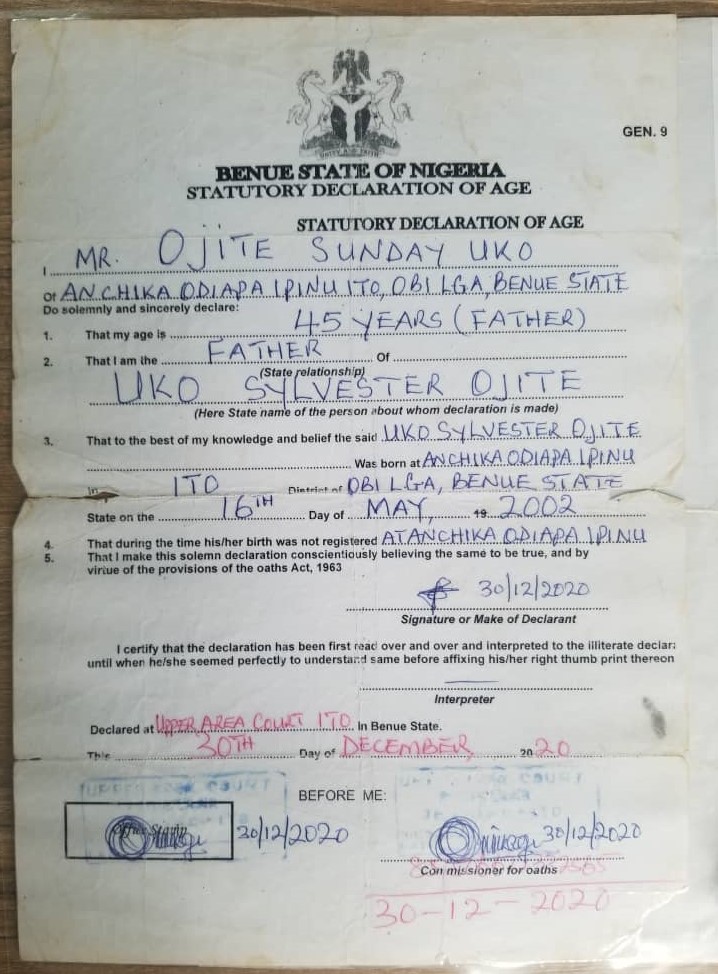 GEN. 9
BENUE STATE OF NIGERIA
STATUTORY DECLARATION OF AGE
STATUTORY DECLARATION OF AGE
I MR. OJITE SUNDAY UKO
Of ANCHIKA ODIAPA IPINU ITO, OBI LGA, BENUE STATE
Do solemnly and sincerely declare:
1. That my age is 45 YEARS (FATHER)
2. That I am the FATHER Of
(State relationship)
UKO SYLVESTER OJITE
(Here State name of the person about whom declaration is made)
3. That to the best of my knowledge and belief the said UKO SYLVESTER OJITE
Was born at ANCHIKA ODIAPA IPINU
in ITO District of OBI LGA, BENUE STATE
State on the 16TH Day of MAY, 19 2002
4. That during the time his/her birth was not registered AT ANCHIKA ODIAPA IPINU
5. That I make this solemn declaration conscientiously believing the same to be true, and by
virtue of the provisions of the oaths Act, 1963
30/12/2020
Signature or Make of Declarant
I certify that the declaration has been first read over and over and interpreted to the illiterate declar
until when he/she seemed perfectly to understand same before affixing his/her right thumb print thereon
Interpreter
Declared at UPPER AREA COURT ITO In Benue State.
This 30TH Day of DECEMBER, 20 20
BEFORE ME:
Office Stamp 30/12/2020
30/12/2020
Commissioner for oaths
30-12-2020